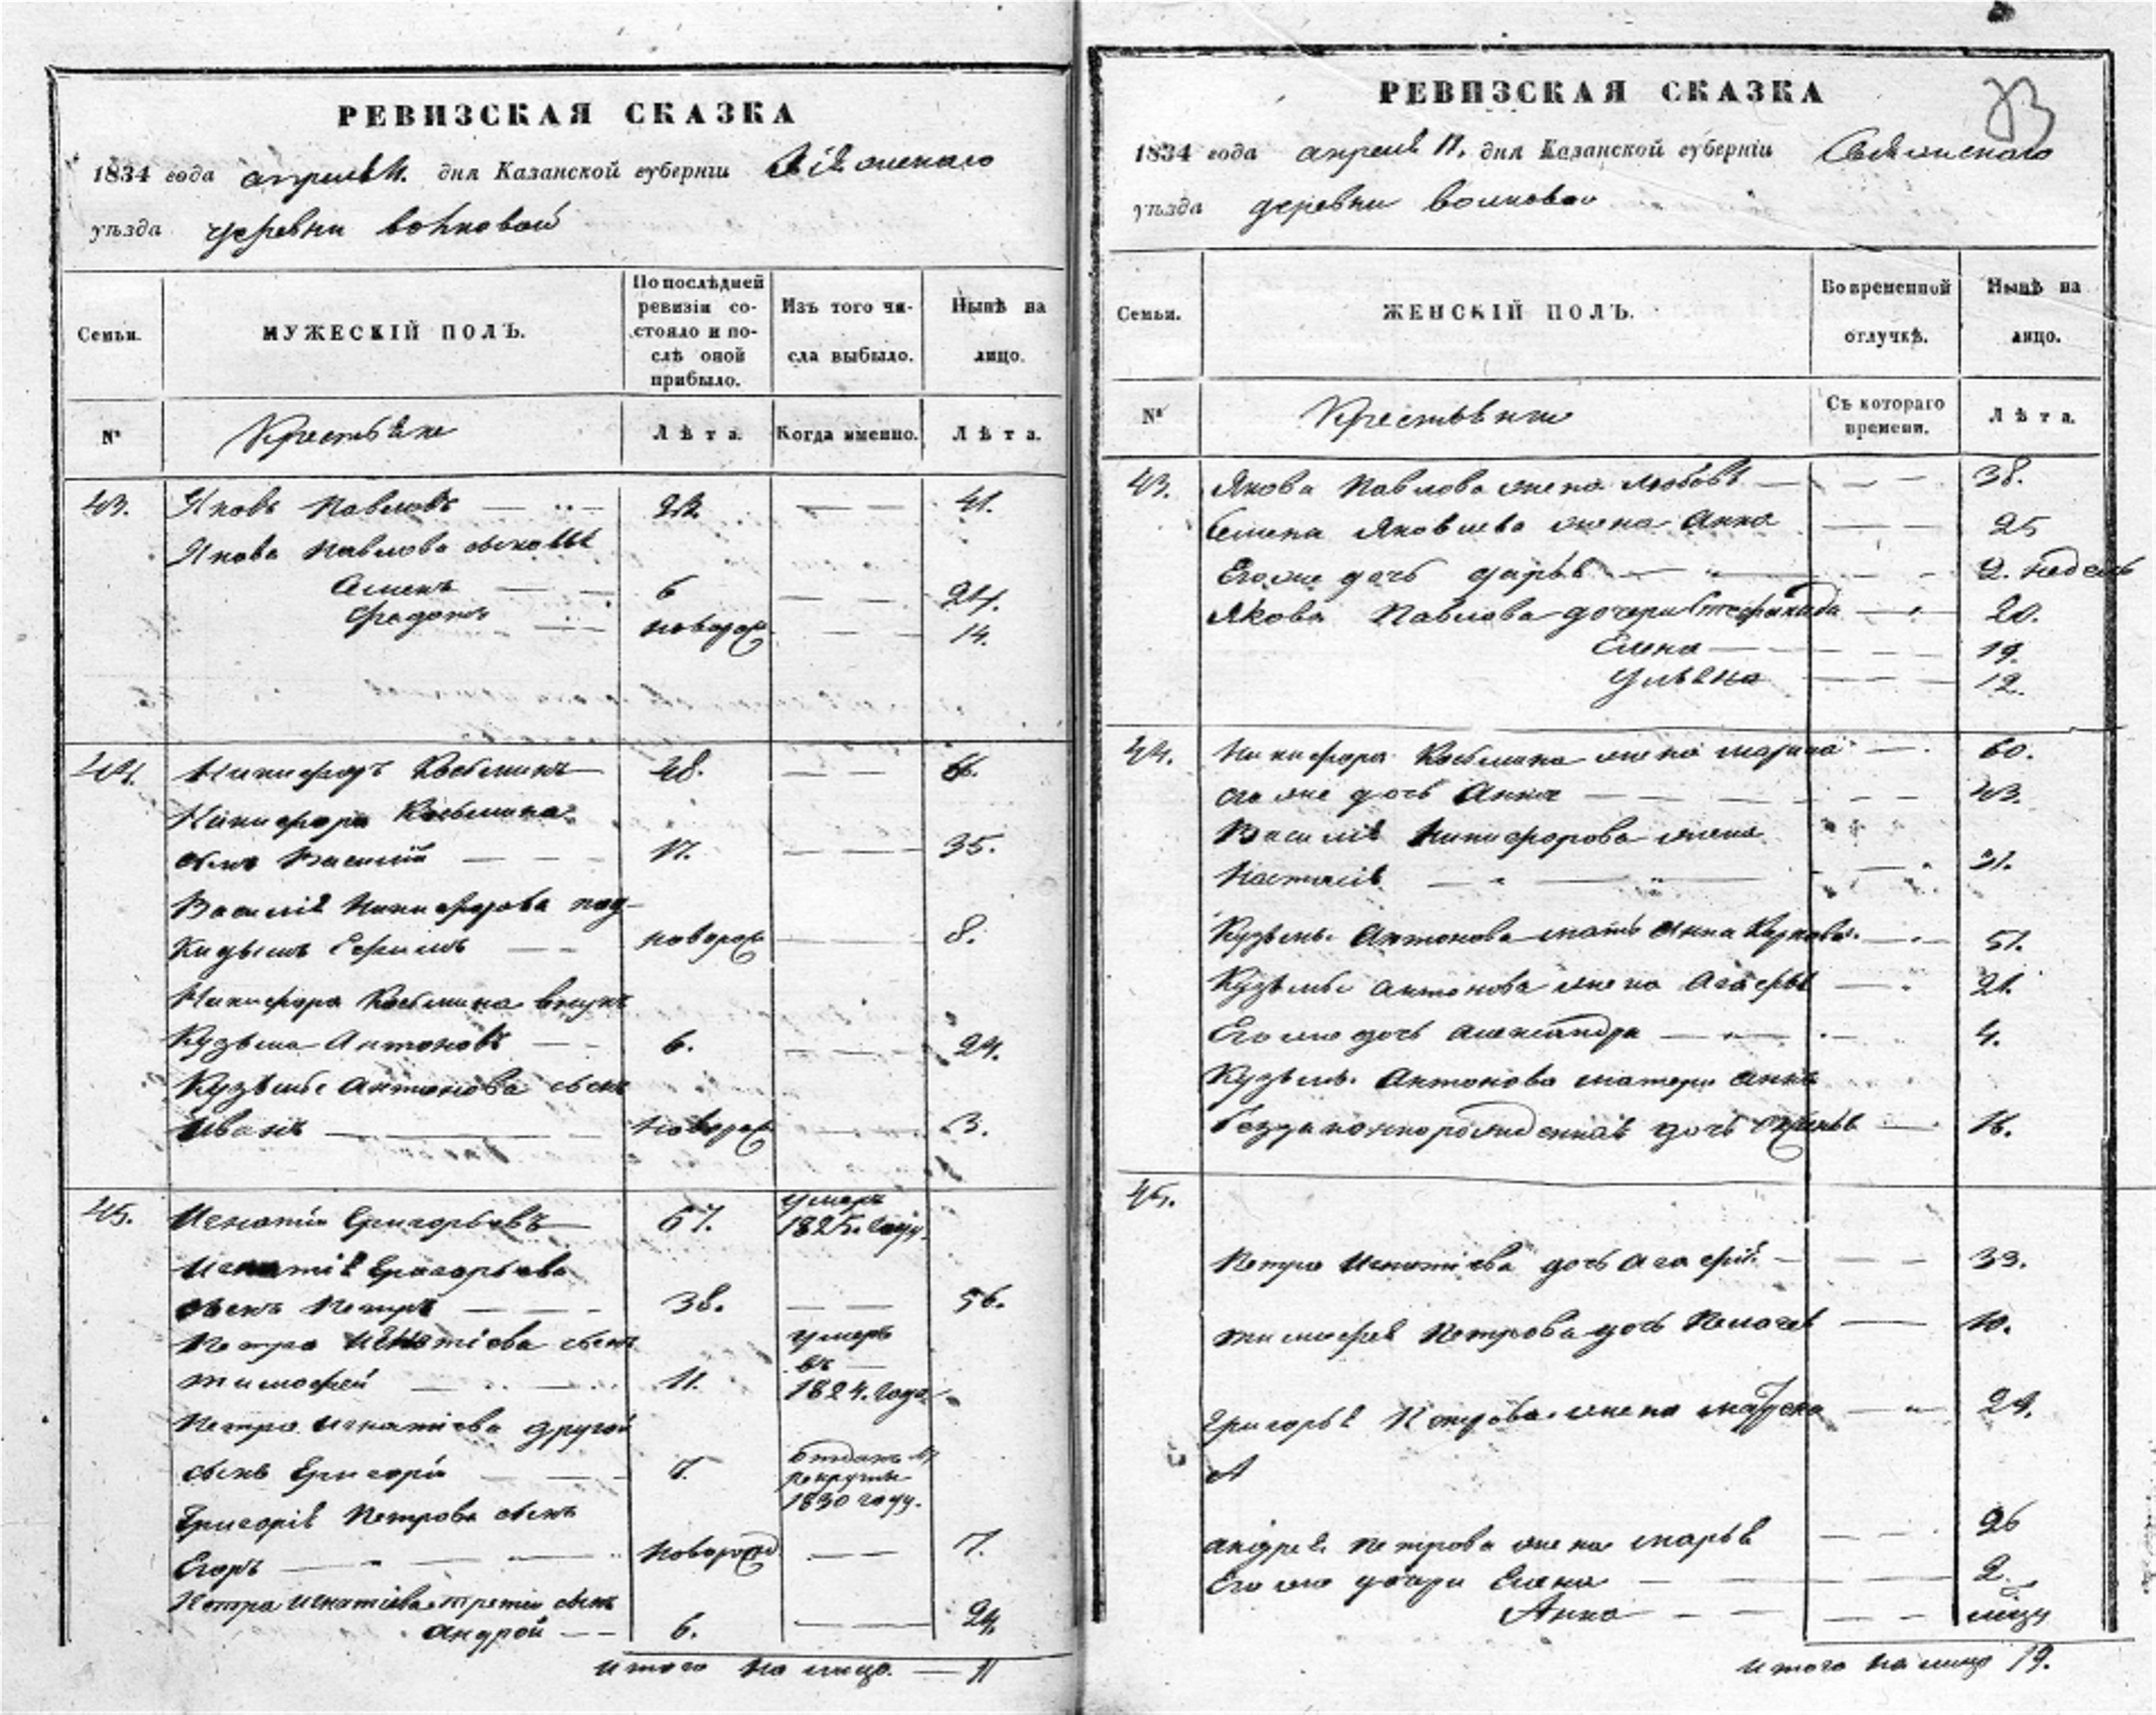 РЕВИЗСКАЯ СКАЗКА
1834 года апреля дня Казанской губерніи
уѣзда деревни волковой
Семьи.
МУЖЕСКІЙ ПОЛЪ.
По послѣдней ревизіи состояло и послѣ оной прибыло.
Изъ того числа выбыло.
Нынѣ на лицо.
№
Крестьяне
Лѣта.
Когда именно.
Лѣта.
43. Яковъ Павловъ 22 41.
Якова Павлова сыновья
Семенъ 6 24.
Федотъ новорож 14.
44. Никифоръ Козьминъ 48. 66.
Никифора Козьмина
сынъ Василий 17. 35.
Василія Никифорова под-
кидышъ Ефимъ новорож 8.
Никифора Козьмина внукъ
Кузьма Антоновъ 6. 24.
Кузьмы Антонова сынъ
Иванъ новорож 3.
45. Игнатій Григорьевъ 67. умеръ 1825. году.
Игнатія Григорьева
сынъ Петръ 38. 56.
Петра Игнатіева сынъ умеръ
въ
тимофей 11. 1824. года
Петра Игнатіева другой
сынъ Григорій 7. отданъ въ рекруты 1830 году.
Григорія Петрова сынъ
Егоръ новорожд 7.
Петра Игнатіева третій сынъ
андрей 6. 24.
итого на лицо. 11
РЕВИЗСКАЯ СКАЗКА
1834 года апреля дня Казанской губерніи
уѣзда деревни волковой
Семьи.
ЖЕНСКІЙ ПОЛЪ.
Во временной отлучкѣ.
Нынѣ на лицо.
№
Крестьяне
Съ котораго времени.
Лѣта.
43. Якова Павлова жена любовь 38.
Семена Яковлева жена Анна 25
Его же дочь дарья 2. недель
Якова Павлова дочери Степанида 20.
Елена 19.
Ульяна 12.
44. Никифора Козьмина жена марина 60.
его же дочь Анна 43.
Василія Никифорова жена
Настасія 31.
Кузьмы Антонова мать Анна 51.
Кузьмы Антонова жена Агафья 21.
Его же дочь Александра 4.
Кузьмы Антонова матери анны
дочь 16.
45.
Петра Игнатіева дочь агафія 33.
тимофея Петрова дочь Пелагея 10.
Григорья Петрова жена 29.
А
андрея Петрова жена марья 26
Его же дочери Елена 2.
Анна
Итого на лицо 19.